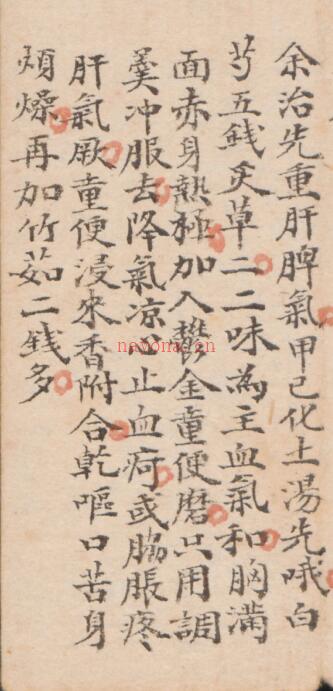 余治先重肝脾氣甲己化土湯先哦白
芍五錢炙草二二味為主血氣和胸滿
面赤身熱極加入欝金童便磨只用調
羹冲服去降氣凉心止血疴或脇脹疼
肝氣厥童便浸米香附合乾嘔口苦身
煩燥再加竹茹二錢多
nayona.cn